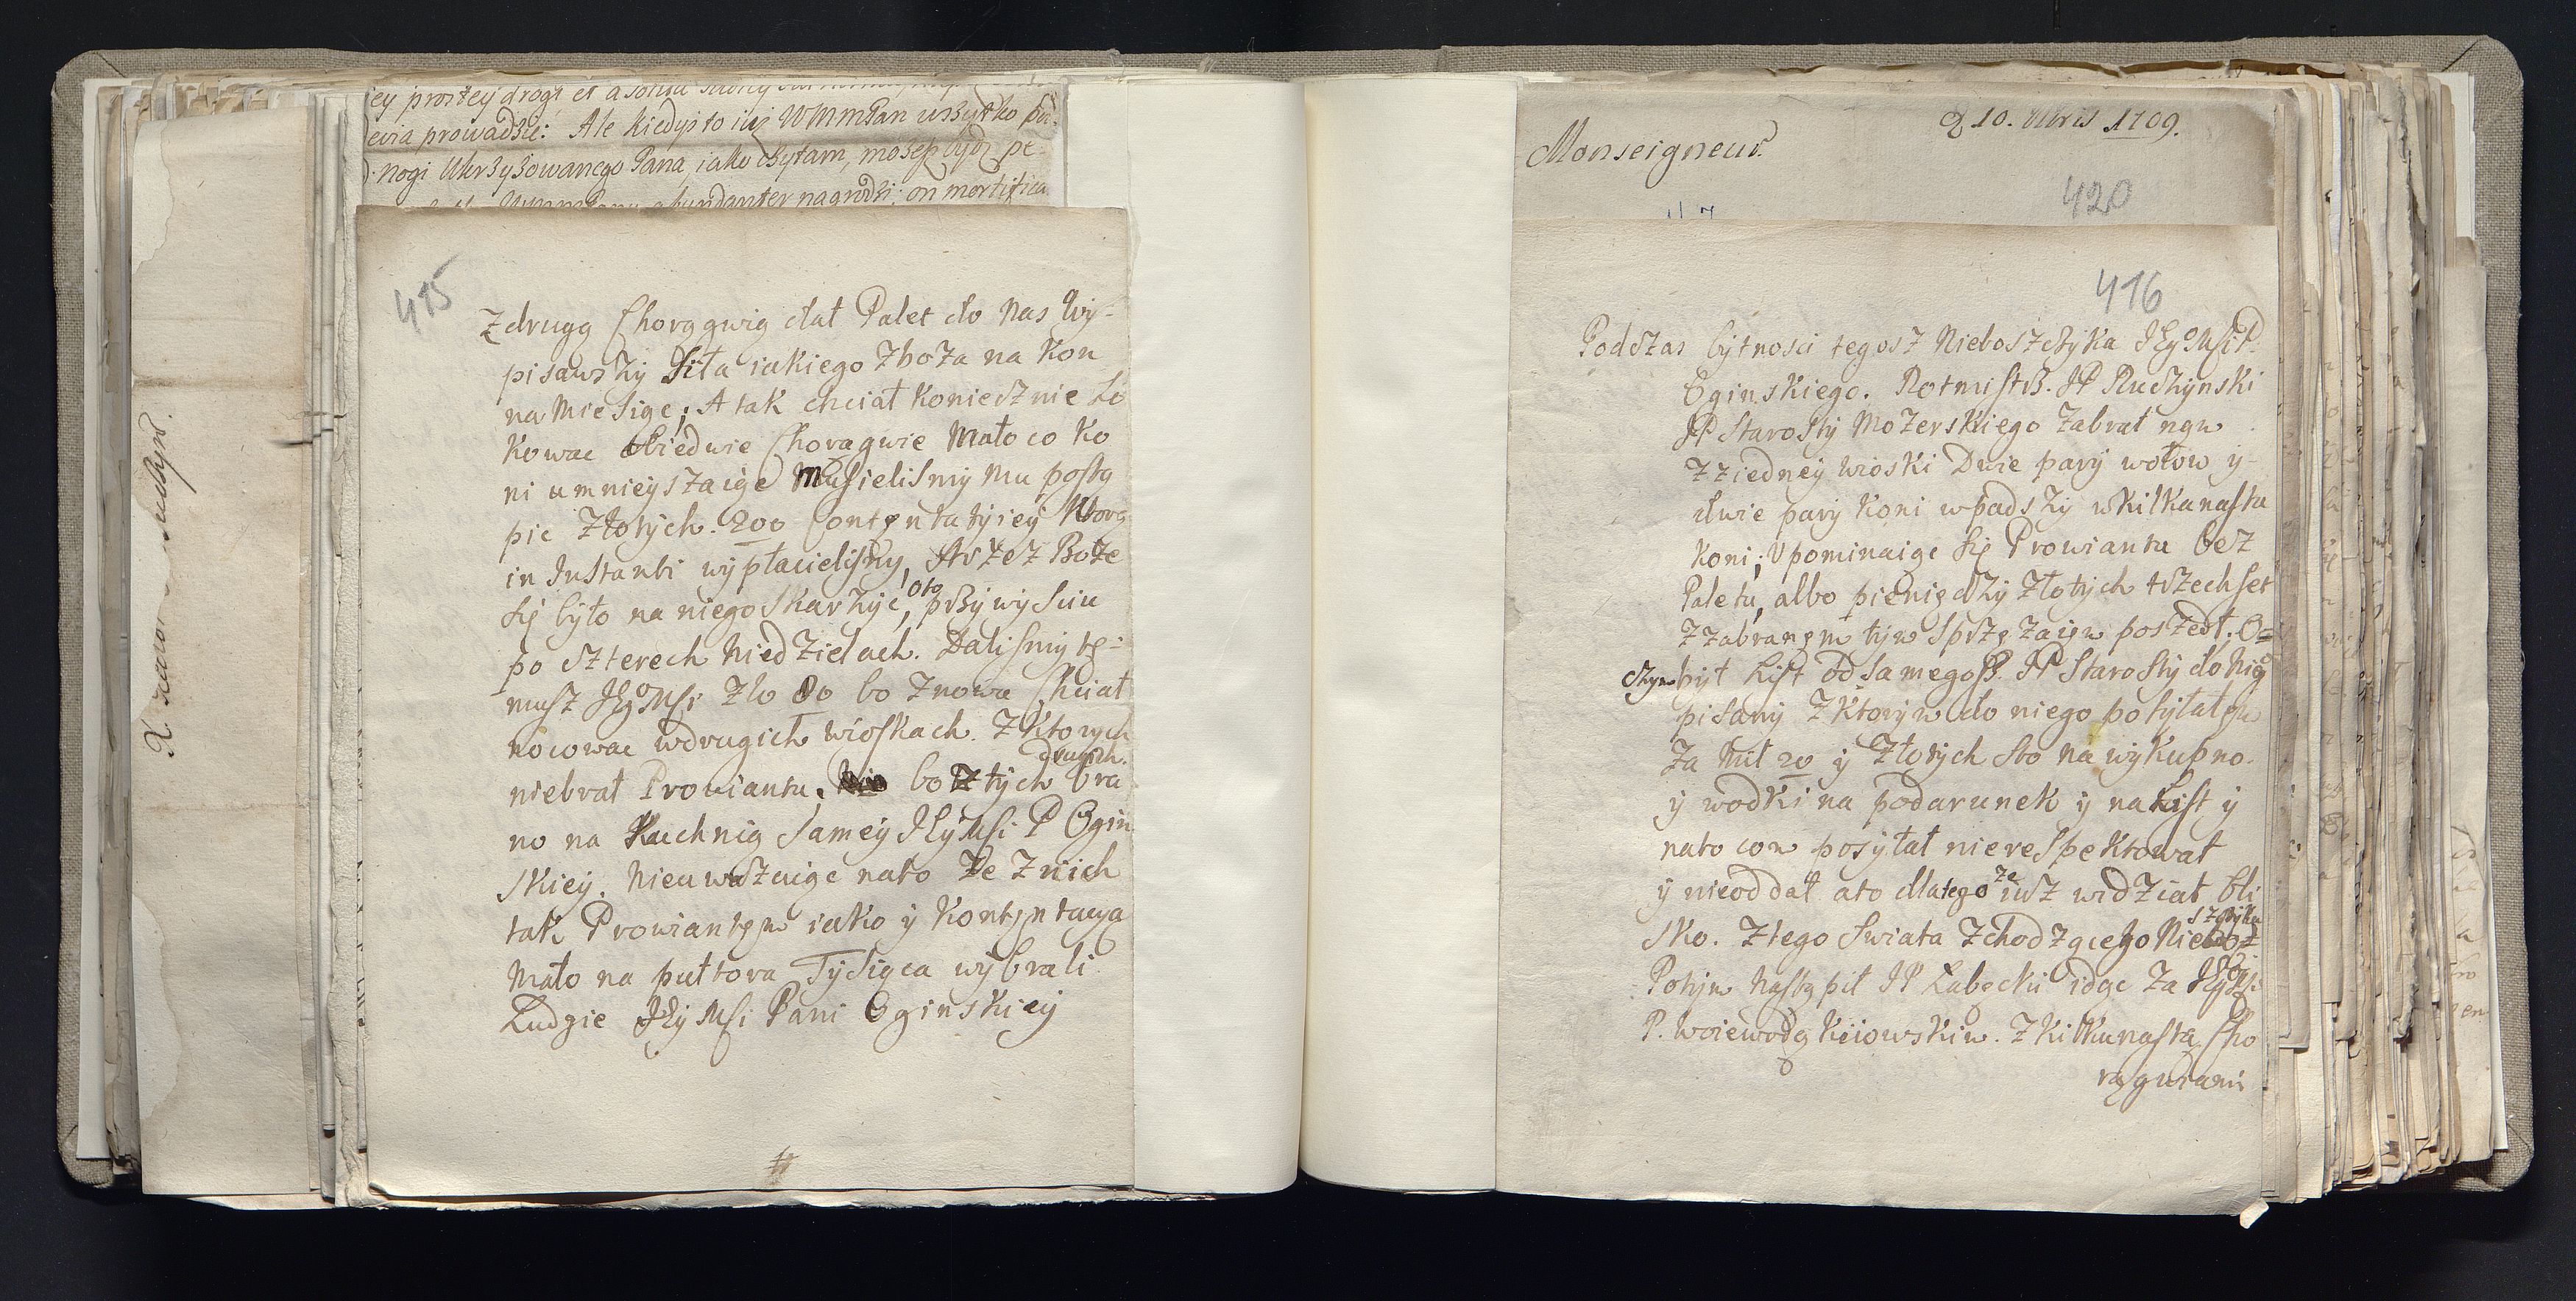 ey prostey drogi et a
ewa prowadzić: Ale kiedyś to iuż WMmPan wszytko pu:
nogi Ukrzyżowanego Pana, iako czytam, możesz bydź pe:
abundanter nagrodzi: on mortifica
415
Z drugą Chorągwią dał Palet do nas Wy-
pisawszy Siła iakiego Zboża na kon
na Miesiąc; A tak chciał koniecznie Lo
kować obiedwie Chorągwie Mało co ko
ni umnieyszaiąc Musielismy mu postą
pić Złotych. 200 Contentatyiey Ktorą
in Instanti wypłacielismy, Aczesz Boże
się było na niego skarżyć, oto przy wysciu
po czterech Niedzielach. Dalismy te-
musz JEgoMsi Zło 80 bo znowu Chciał
nocować w drugich wioskach. Z Ktorych
niebrał Prowiantu, bo z tych drugich bra
no na Kuchnią Samey JEyMsi P Ogin
skiey. Nieuwaszaiąc nato Że z nich
tak Prowiantem iako y kontentacyą
Mało na puttora Tysiąca wybrali
Ludzie JEyMsi Pani Oginskiey
Monseigneur.
10. 1709.
420
416
Podczas bytnosci tegosz Nieboszczyka JEgoMsiP.
Oginskiego. Rotmistrz. JP Ruczynski
JP Starosty Mozerskiego Zabrał nam
z ziedney wioski Dwie pary wołow y
dwie pary koni wpadszy w kilkanastu
koni; Upominaiąc się Prowiantu bez
Paletu, albo pieniędzy Złotych trzechset
z zabranem tym Sprzężaiem poszedł. O=
czym był List od samegosz. JP Starosty do nieg
pisany z ktorym do niego posyłałem
Za Mil 20 y Złotych sto na wykupno.
y wodki na podarunek y na List y
nato com posyłał nierespektował
y nieoddał ato dlatego ze iusz widział bli
sko. Z tego Swiata Zchodzącego Nieboszczyka
Potym Nastąpił JP Łabęcki idąc Za JEgoMsi
P. Woiewodą kiiowskim. Z kilkunastą Cho
rągwiami